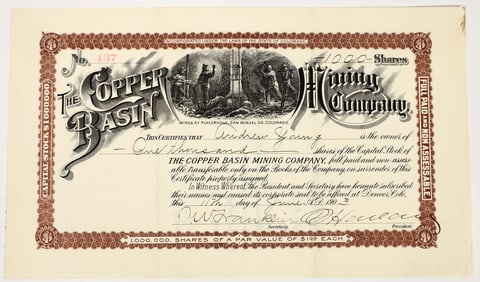 INCORPORATED UNDER THE LAWS OF THE STATE OF COLORADO.
No. 137
1000 Shares
THE COPPER BASIN Mining Company,
MINES AT PLACERVILLE, SAN MIGUEL CO. COLORADO.
CAPITAL STOCK $1000000
FULL PAID AND NON ASSESSABLE.
THIS CERTIFIES THAT Andrew Young is the owner of
One Thousand shares of the Capital Stock of
THE COPPER BASIN MINING COMPANY, full paid and non-assess-
able transferable only on the Books of the Company, on surrender of this
Certificate properly issued.
In Witness Whereof, the President and Secretary have hereunto subscribed
their names and caused its corporate seal to be affixed at Denver, Colo.
this 11th day of June A.D. 1903
C W Franklin
Secretary. President.
1,000,000 SHARES OF A PAR VALUE OF $1.00 EACH.